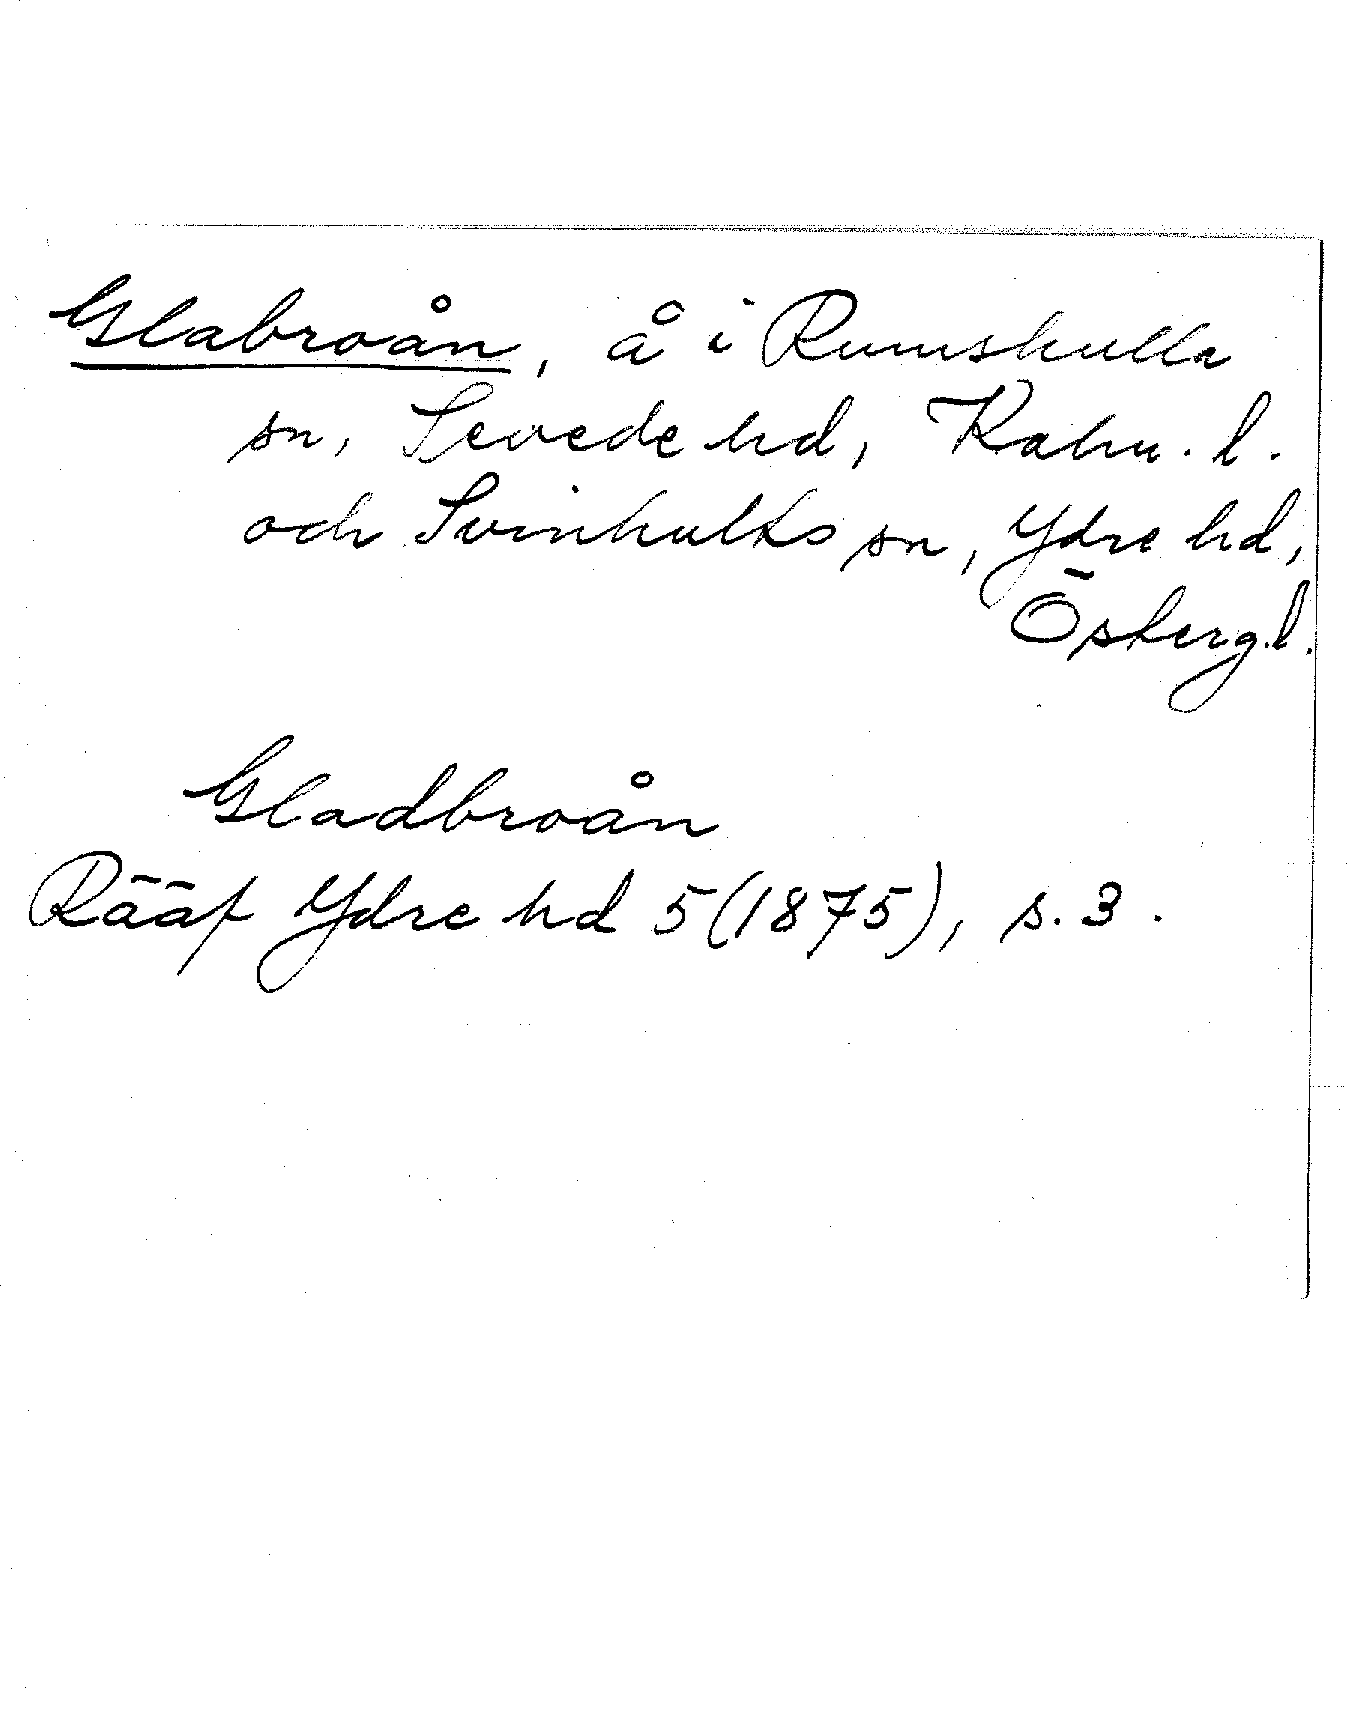 Glabroån, å i Rumskulla
sn, Sevede hd, Kalm. l.
och Svinhults sn, Ydre hd,
Österg.l.
Gladbroån
Rääf Ydre hd 5 (1875), s. 3.